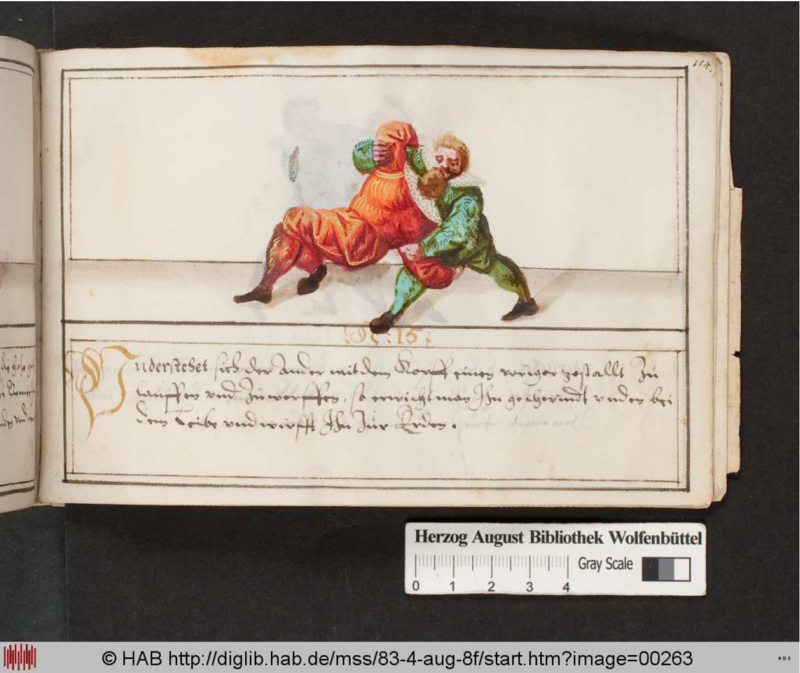 114.
N: 15:
Understehet sich der Ander mit dem Kopff einen voriger gestallt Zu
lauffen und Zuwerffen, so erwischt man Ihn geschwindt unden bei
dem Leibe und wirfft Ihn Zur Erden.
Herzog August Bibliothek Wolfenbüttel
Gray Scale
0 1 2 3 4
© HAB http://diglib.hab.de/mss/83-4-aug-8f/start.htm?image=00263